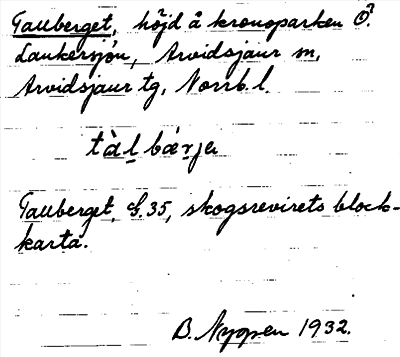 Tallberget, höjd å kronoparken Ö.
Laukersjön, Arvidsjaur sn,
Arvidsjaur tg, Norrb. l.
tàlbǽrjɐ
Tallberget, 35, skogsrevirets block-
karta.
B. Nyqvist 1932.